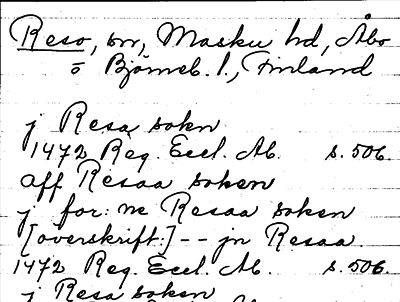 Reso, sn, Masku hd, Åbo
o Björneb. l., Finland
j Resa sokn
1472 Reg. Eccl. Ab. s. 506.
aff Resaa soken
j for: ne Resaa soken
[overskrift:] -- jn Resaa.
1472 Reg. Eccl. Ab. s. 506.
j Resa soken